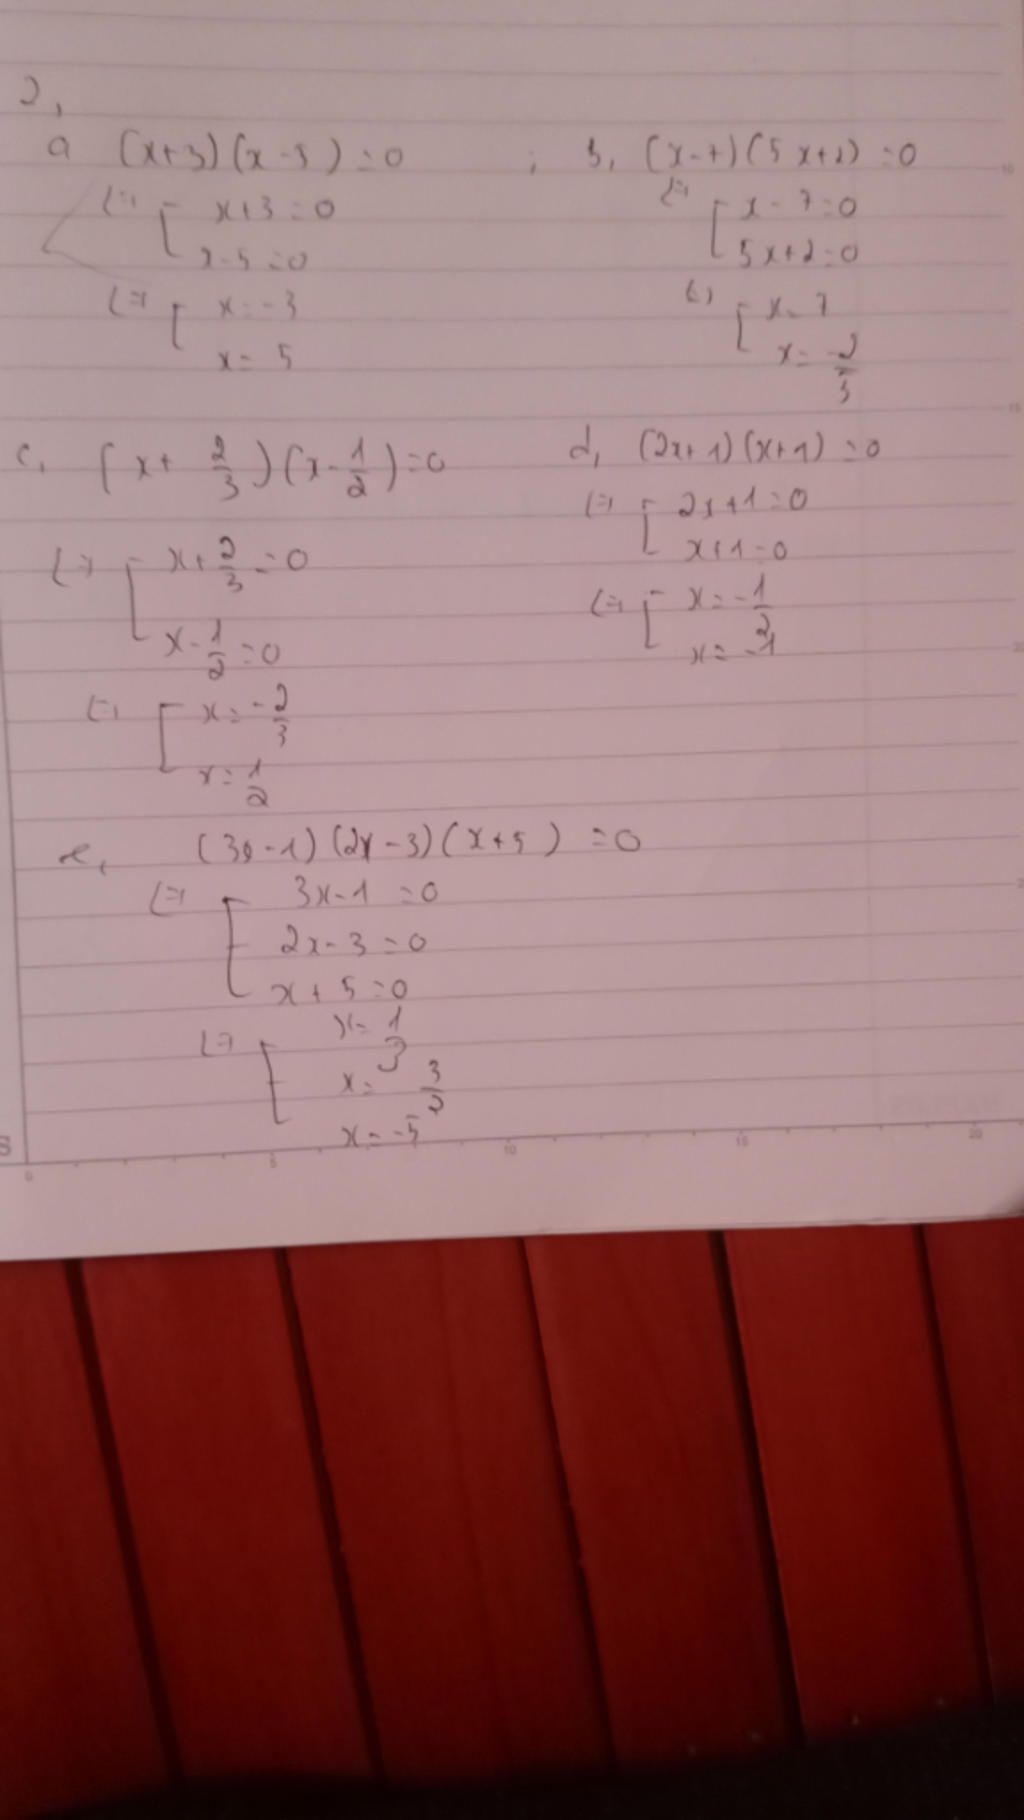 2,
a (x+3)(x-5)=0 ; b, (x-7)(5x+2)=0
<=> [ x+3=0
x-5=0
<=> [ x=-3
x=5
<=> [ x-7=0
5x+2=0
<=> [ x=7
x=-2/5
c, (x+2/3)(x-1/2)=0
<=> [ x+2/3=0
x-1/2=0
<=> [ x=-2/3
x=1/2
d, (2x+1)(x+1)=0
<=> [ 2x+1=0
x+1=0
<=> [ x=-1/2
x=-1
e, (3x-1)(2x-3)(x+5)=0
<=> [ 3x-1=0
2x-3=0
x+5=0
<=> [ x=1/3
x=3/2
x=-5
S
0 5 10 15 20